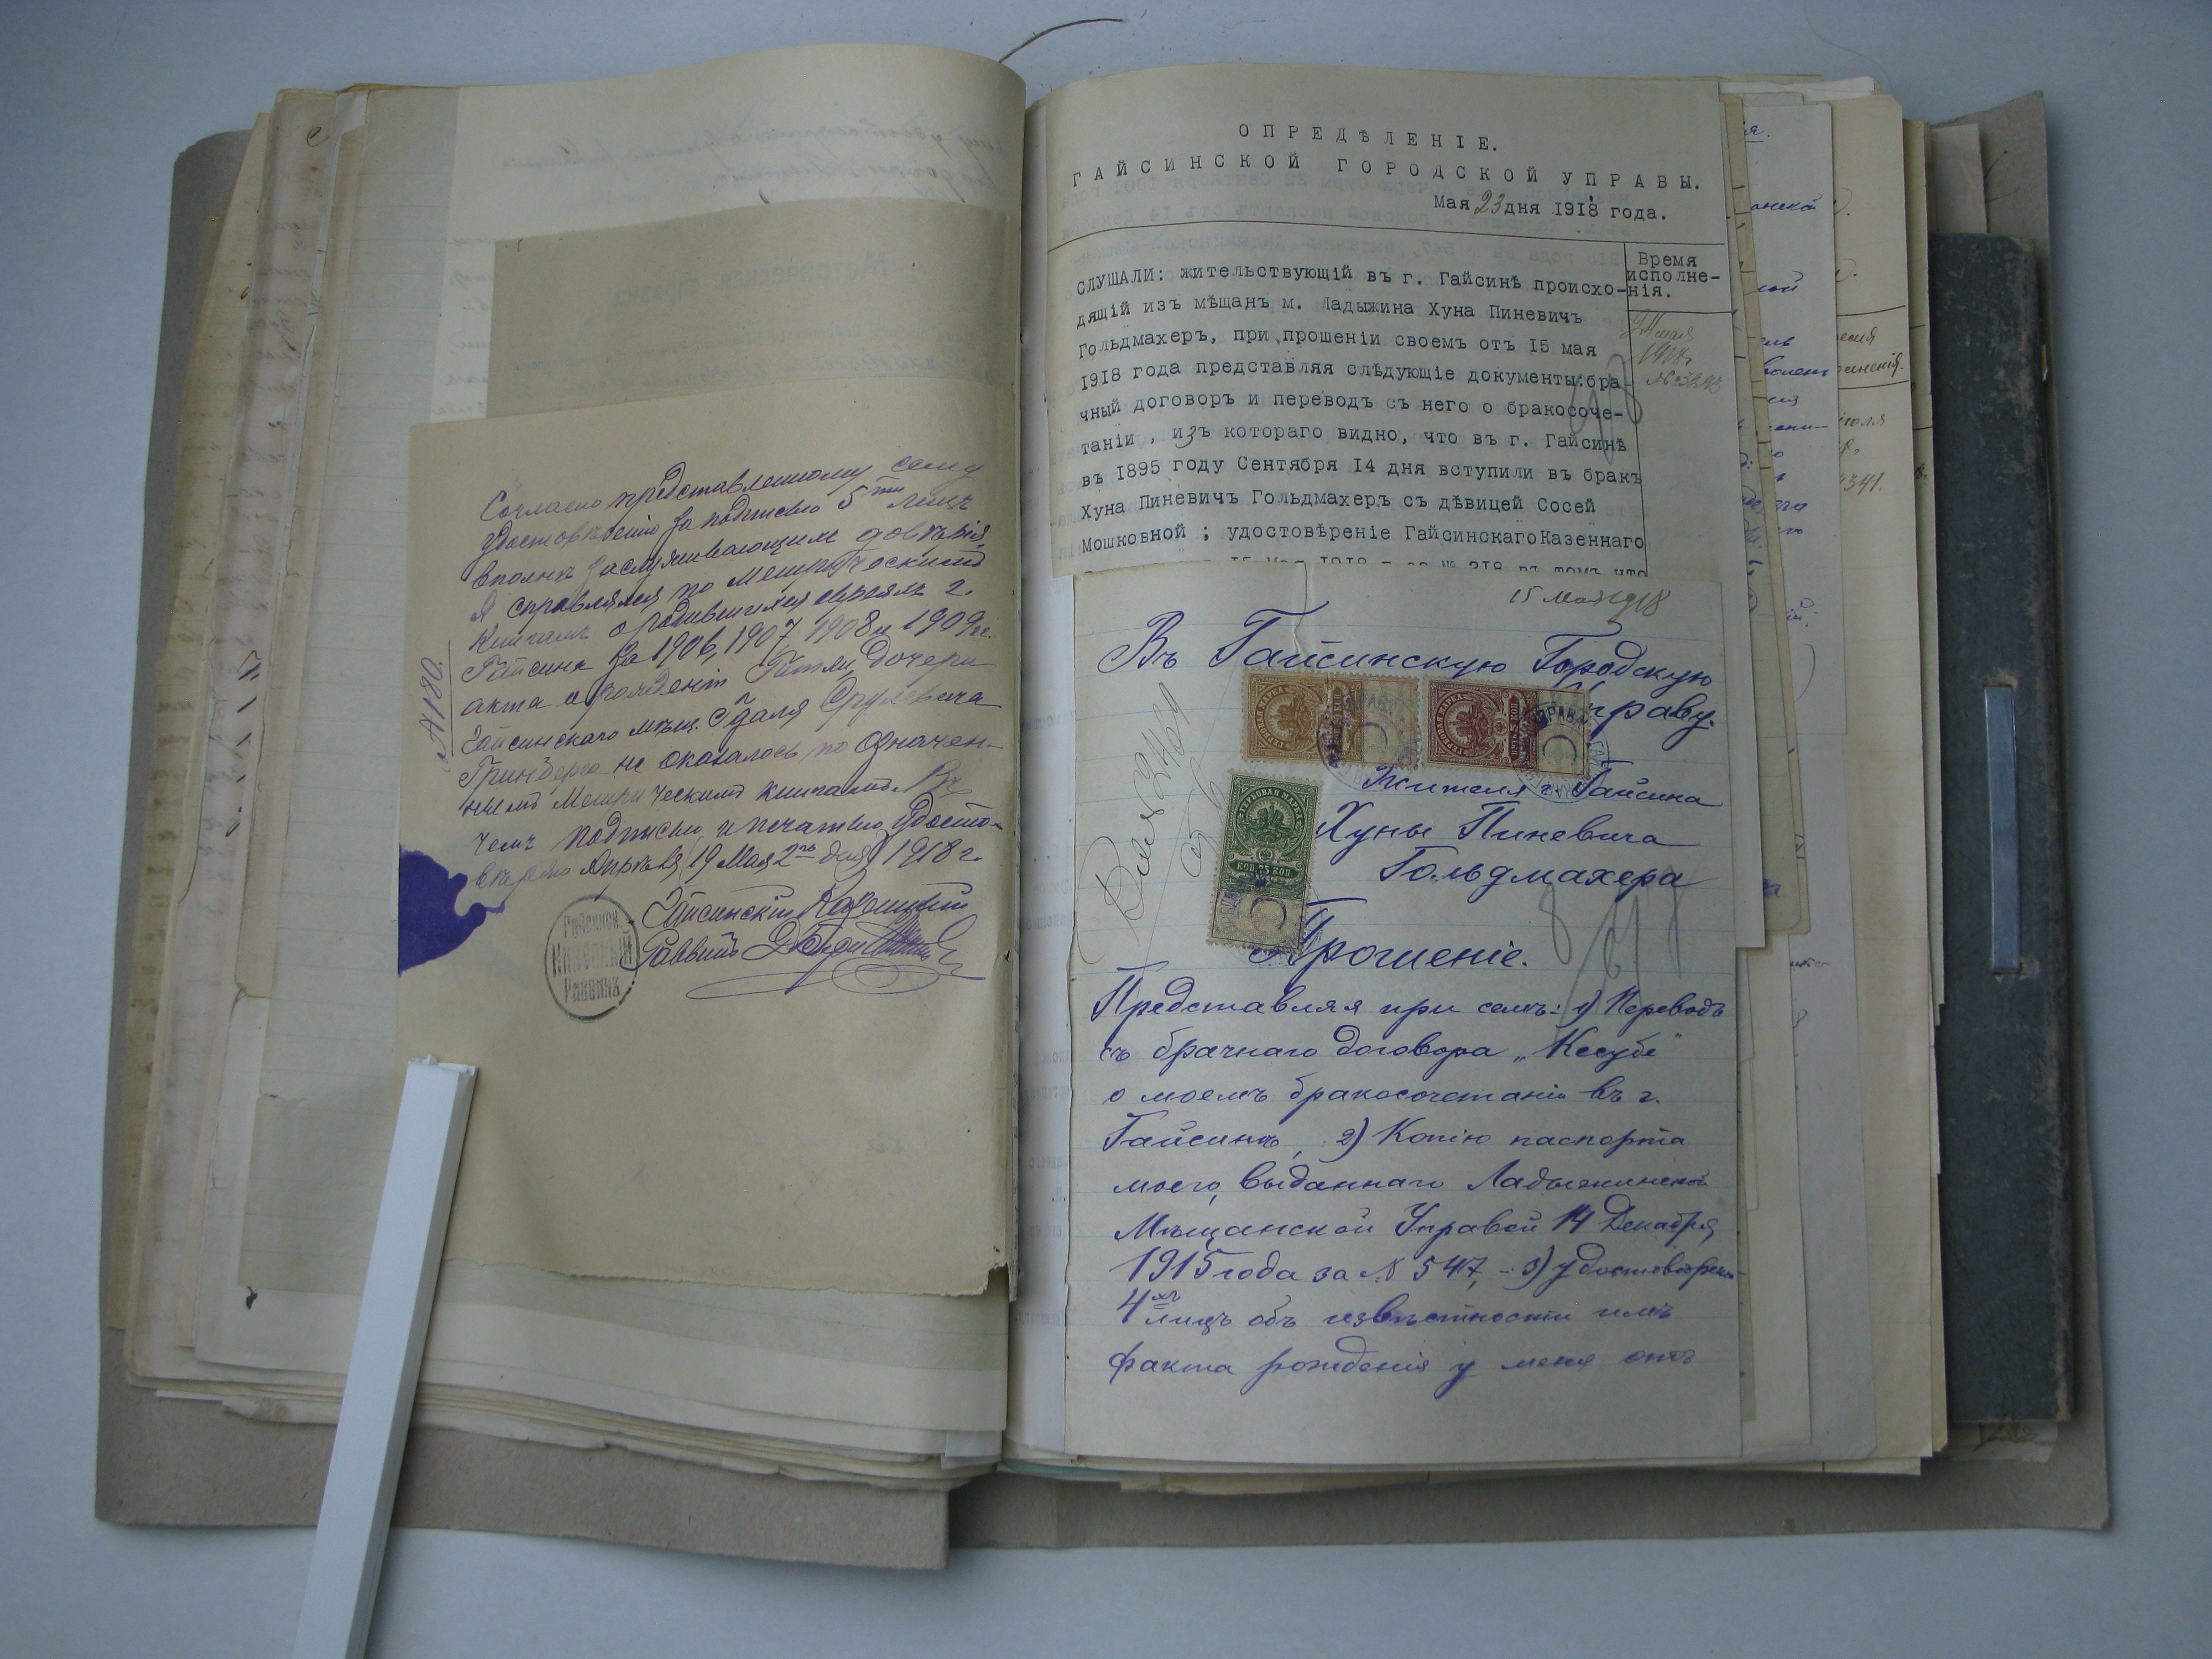 Согласно представленному сему
удостовѣренію за подписью 5ти лицъ
вполнѣ заслуживающихъ довѣрія,
я справлялся по Метрическимъ
книгамъ о родившихся евреяхъ г.
Гайсина за 1906, 1907, 1908 и 1909 гг.
акта о рожденіи Гитли, дочери
Гайсинскаго мѣщ. Сруловича
Гринберга не оказалось по означен-
нымъ Метрическимъ книгамъ. Въ
чемъ подписью и печатью удосто-
вѣряю Апрѣля 19 Мая 2го дня 1918 г.
Гайсинскій Казенный
Раввинъ
№ 180.
Гайсинск.
Казенный
Раввинъ
ОПРЕДѢЛЕНІЕ.
ГАЙСИНСКОЙ ГОРОДСКОЙ УПРАВЫ.
Мая 23 дня 1918 года.
Время
исполне-
нія.
СЛУШАЛИ: жительствующій въ г. Гайсинѣ происхо-
дящій изъ мѣщанъ м. Ладыжина Хуна Пиневичъ
Гольдмахеръ, при прошеніи своемъ отъ 15 мая
1918 года представляя слѣдующіе документы:бра-
чный договоръ и переводъ съ него о бракосоче-
таніи , изъ котораго видно, что въ г. Гайсинѣ
въ 1895 году Сентября 14 дня вступили въ бракъ
Хуна Пиневичъ Гольдмахеръ съ дѣвицей Сосей
Мошковной ; удостовѣреніе ГайсинскагоКазеннаго
15 Мая 1918 г за № 218 въ томъ что
мая
1918 г
15 Мая 1918
Въ Гайсинскую Городскую
Управу.
ГЕРБОВАЯ МАРКА
КОП. 75 КОП
Жителя г. Гайсина
Хуны Пиневича
Гольдмахера
Прошеніе.
Представляя при семъ: 1) Переводъ
съ брачнаго договора „Кесубе"
о моемъ бракосочетаніи въ г.
Гайсинѣ, 2) Копію паспорта
моего, выданнаго Ладыжинской
Мѣщанской Управой 14 Декабря
1915 года за № 547, - 3) удостовѣрен.
4хъ лицъ объ извѣстности имъ
факта рожденія у меня отъ